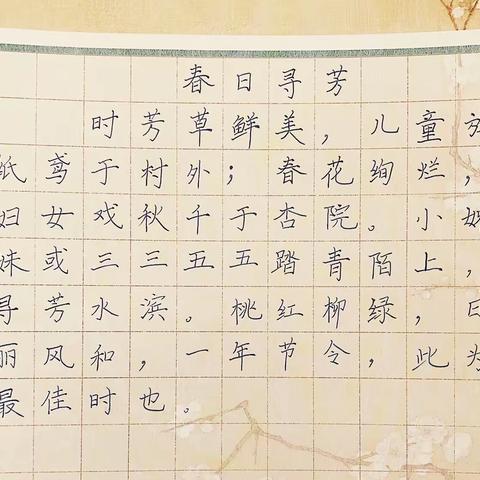 春日寻芳
时芳草鲜美，儿童放
纸鸢于村外；春花绚烂，
妇女戏秋千于杏院。小姊
妹或三三五五踏青陌上，
寻芳水滨。桃红柳绿，日
丽风和，一年节令，此为
最佳时也。